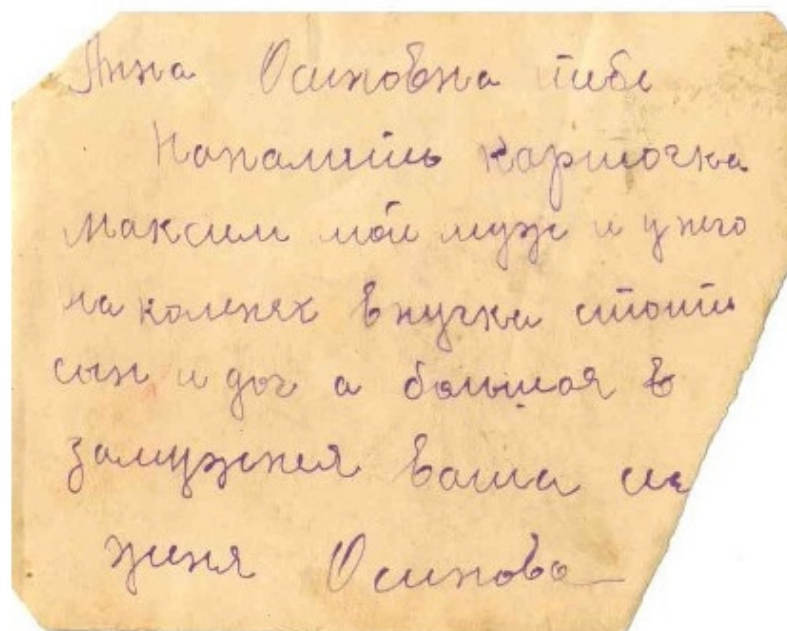 Анна Осиповна тебе
Напамить карточка
максим мой муж и у него
на коленях внучка стоит
сын и доч а большая в
замужнея ваша
женя Осипова